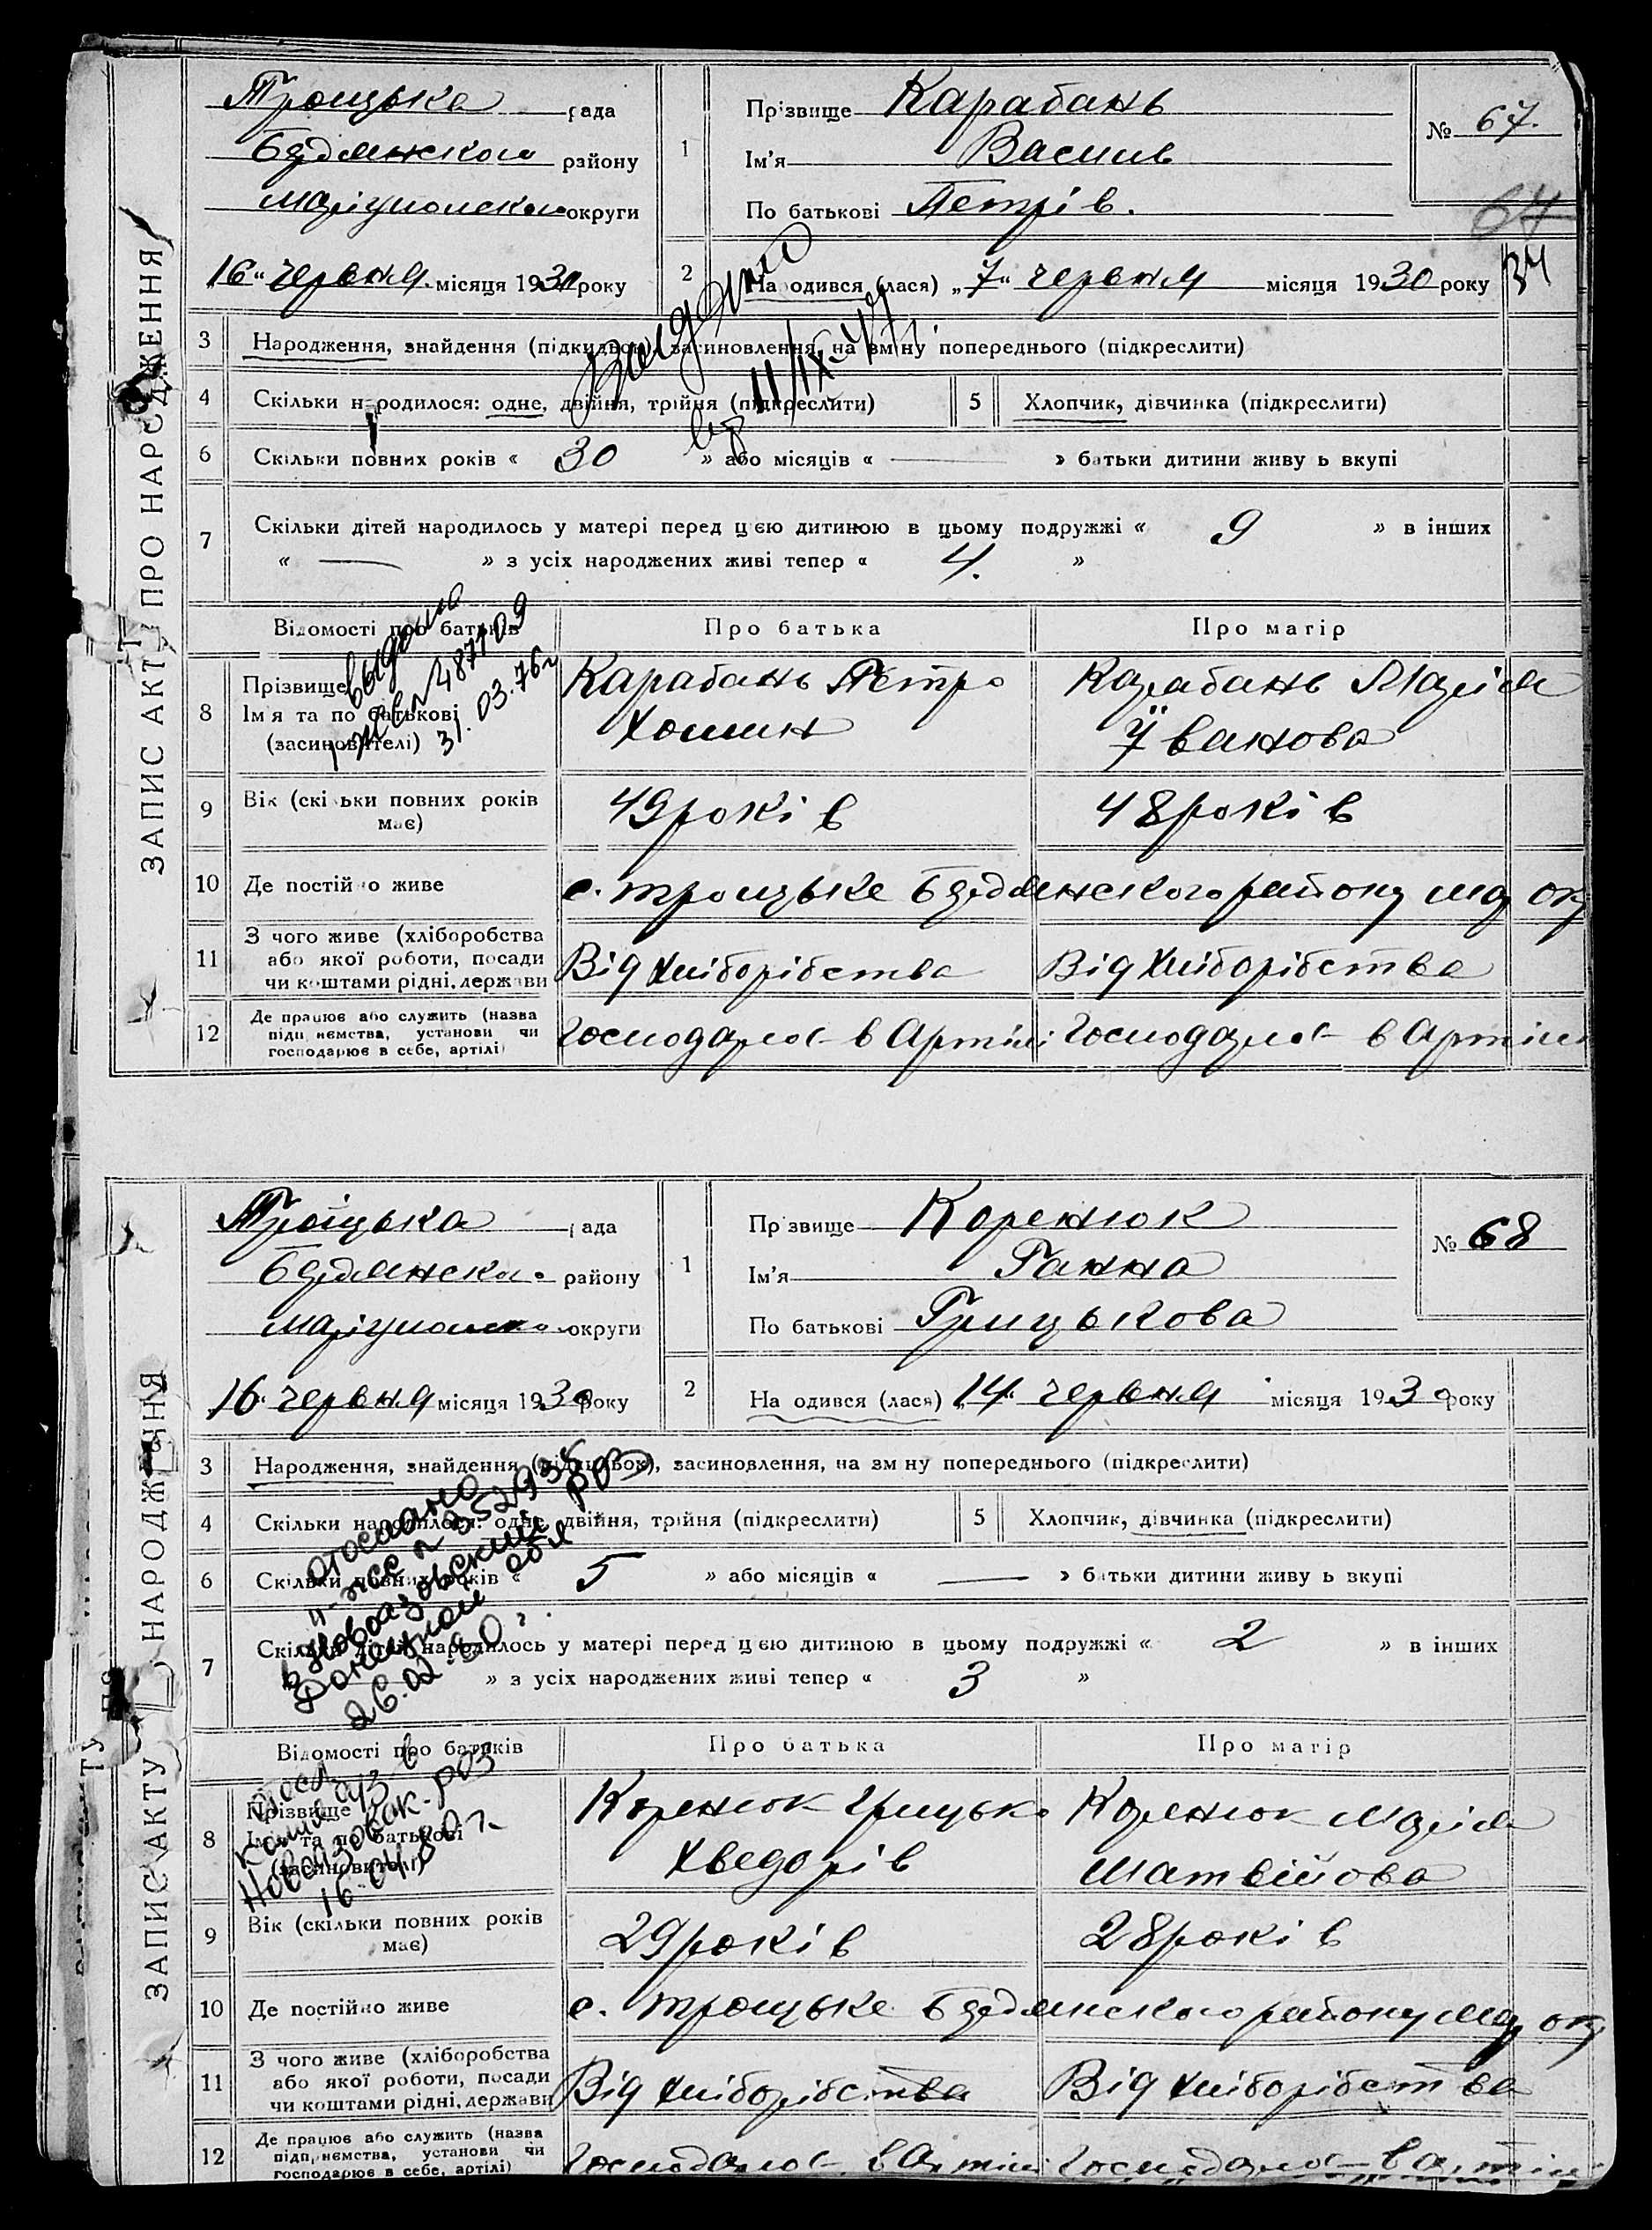 ЗАПИС АКТУ ПРО НАРОДЖЕННЯ
Троицька рада
Будянского району
Маріупольского округи
16 червня місяця 1930 року
1
Прізвище Карабань
Ім'я Василь
По батькові Петрів.
№ 67.
64
34
2
Народився (лася) „7“ червня місяця 1930 року
3 Народження, знайдення (підкидьок), засиновлення, на зміну попереднього (підкреслити)
4 Скільки народилося: одне, двійня, трійня (підкреслити) 5 Хлопчик, дівчинка (підкреслити)
11/IX-47
6 Скільки повних років « 30 » або місяців « — » батьки дитини живуть вкупі
7 Скільки дітей народилось у матері перед цією дитиною в цьому подружжі « 9 » в інших
« — » з усіх народжених живі тепер « 4. »
Відомості про батьків Про батька Про матір
31.03.76г
8 Прізвище
Ім'я та по батькові
(засиновителі)
Карабань Петро
Хомин
Карабань Марія
Іванова
9 Вік (скільки повних років
має)
49 років 48 років
10 Де постійно живе с. Троицьке Будянского району Мар окр
11 З чого живе (хліборобства
або якої роботи, посади
чи коштами рідні, держави
Від хліборібства Від хліборібства
12 Де працює або служить (назва
підприємства, установи чи
господарює в себе, артілі)
Господарює в Артілі Господарює в Артілі
ЗАПИС АКТУ ПРО НАРОДЖЕННЯ
Троїцька рада
Будянского району
Маріупольского округи
16 червня місяця 1930 року
1
Прізвище Коренюк
Ім'я Ганна
По батькові Грицькова
№ 68
2
Народився (лася) „14“ червня місяця 1930 року
3 Народження, знайдення (підкидьок), засиновлення, на зміну попереднього (підкреслити)
4 Скільки народилося: одне, двійня, трійня (підкреслити) 5 Хлопчик, дівчинка (підкреслити)
6 Скільки повних років « 5 » або місяців « — » батьки дитини живуть вкупі
7 Скільки дітей народилось у матері перед цією дитиною в цьому подружжі « 2 » в інших
» з усіх народжених живі тепер « 3 »
отослано
в Новоазовский РОЗ
Донецкой обл
26.02.80г.
Відомості про батьків Про батька Про матір
16.04.80г.
8 Прізвище
Ім'я та по батькові
(засиновителі)
Коренюк Грицько
Хведорів
Коренюк Марія
Матвійова
9 Вік (скільки повних років
має)
29 років 28 років
10 Де постійно живе с. Троицьке Будянского району Мар окр
11 З чого живе (хліборобства
або якої роботи, посади
чи коштами рідні, держави
Від хліборібства Від хліборібства
12 Де працює або служить (назва
підприємства, установи чи
господарює в себе, артілі)
Господарює в Артілі Господарює в Артілі